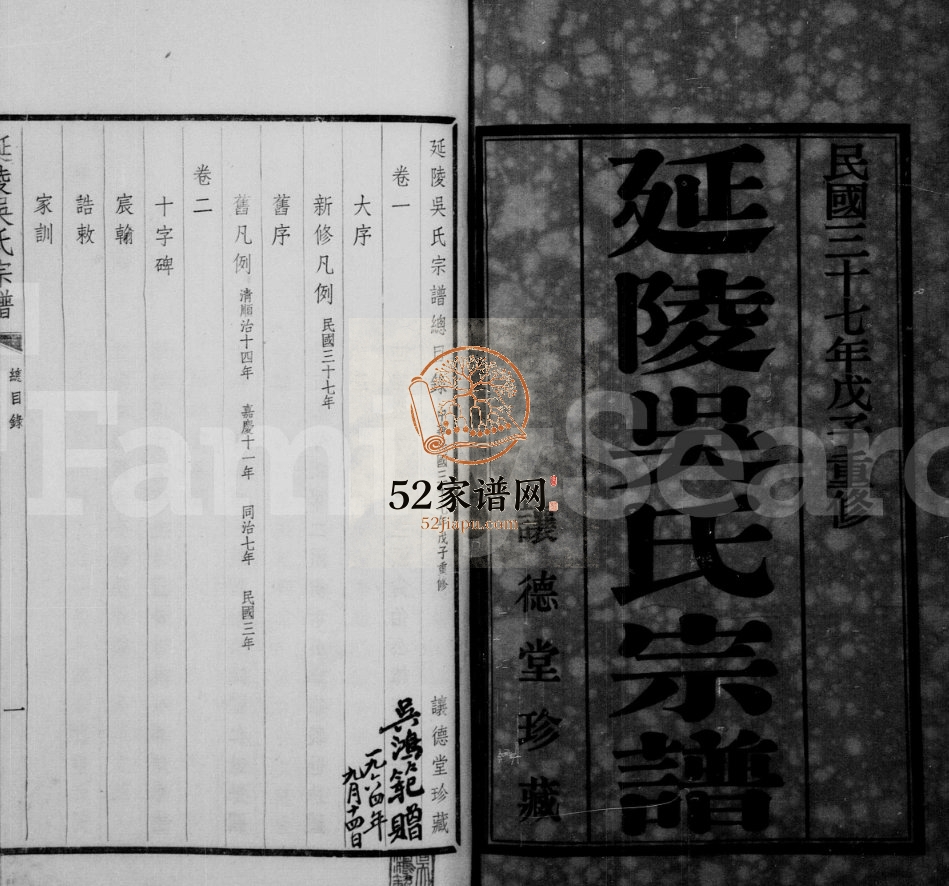 民國三十七年戊子重修
延陵吳氏宗譜
讓德堂珍藏
延陵吳氏宗譜總目錄
戊子重修
讓德堂珍藏
卷一
大序
新修凡例 民國三十七年
舊序
舊凡例 清順治十四年 嘉慶十一年 同治七年 民國三年
卷二
十字碑
宸翰
誥敕
家訓
延陵吳氏宗譜
總目錄
一
吳鴻範贈
一九六四年
九月十四日
52家谱网
52jiapu.com
FamilySearc